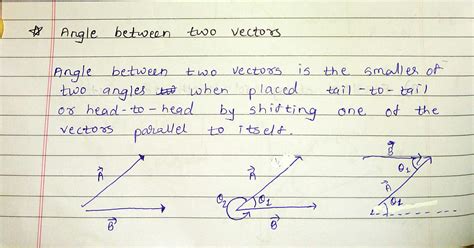 ☆ Angle between two vectors
Angle between two vectors is the smaller of
two angles when placed tail-to-tail
or head-to-head by shifting one of the
vectors parallel to itself.
A⃗
B⃗
θ2
A⃗
θ1
B⃗
B⃗
θ1
A⃗
θ1